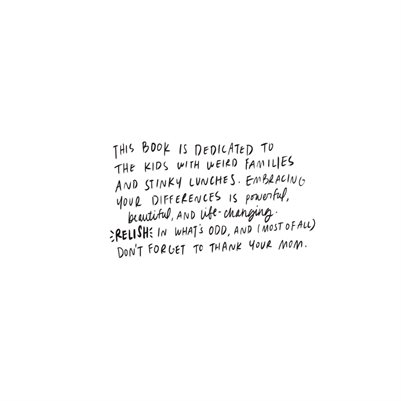 THIS BOOK IS DEDICATED TO
THE KIDS WITH WEIRD FAMILIES
AND STINKY LUNCHES. EMBRACING
YOUR DIFFERENCES IS powerful,
beautiful, AND life-changing.
RELISH IN WHAT'S ODD, AND (MOST OF ALL)
DON'T FORGET TO THANK YOUR MOM.